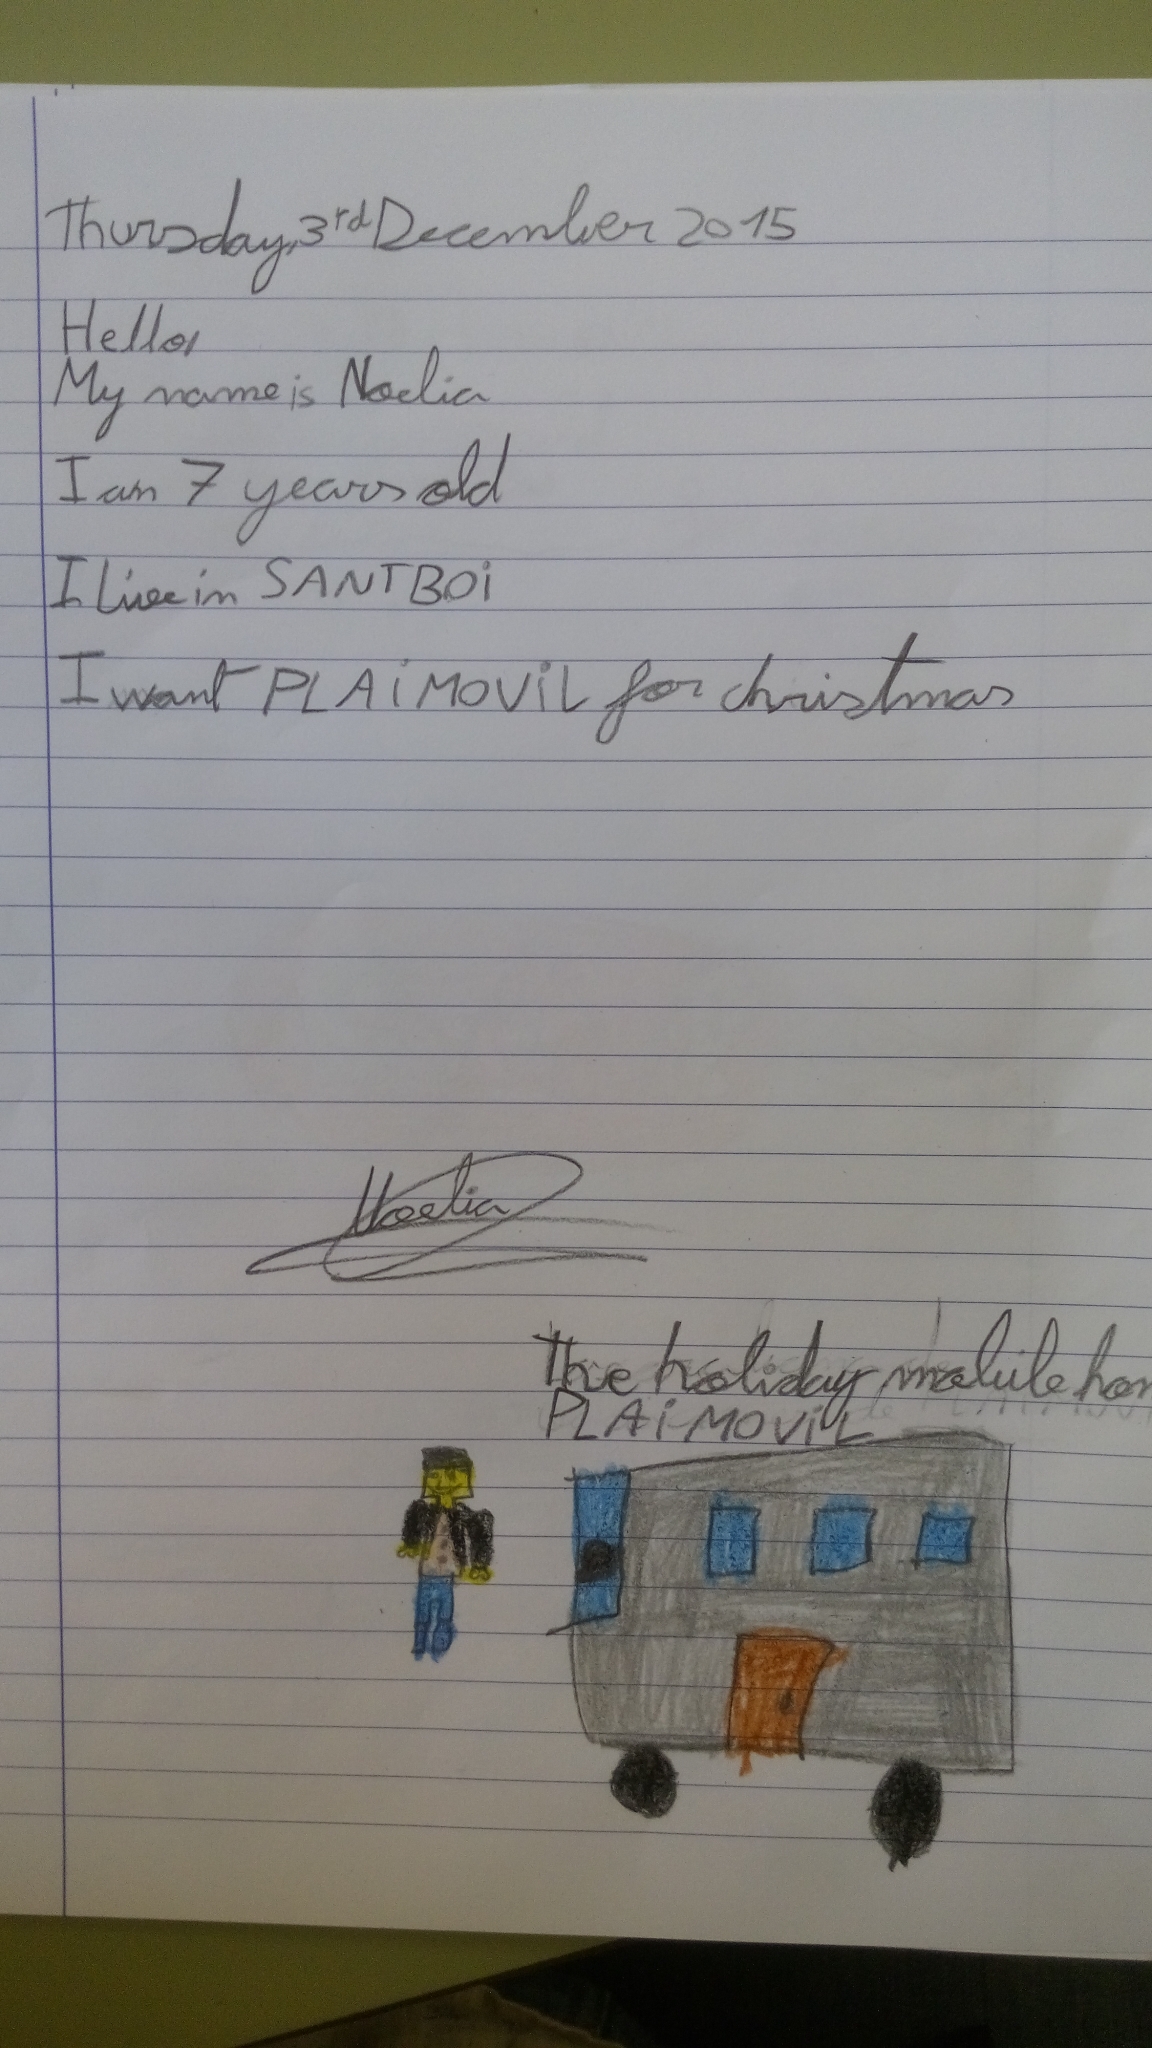 Thursday, 3rd December 2015
Hello,
My name is Noelia
I am 7 years old
I live in SANTBOi
I want PLAiMOViL for christmas
Noelia
The holiday mobile hom
PLAiMOViL